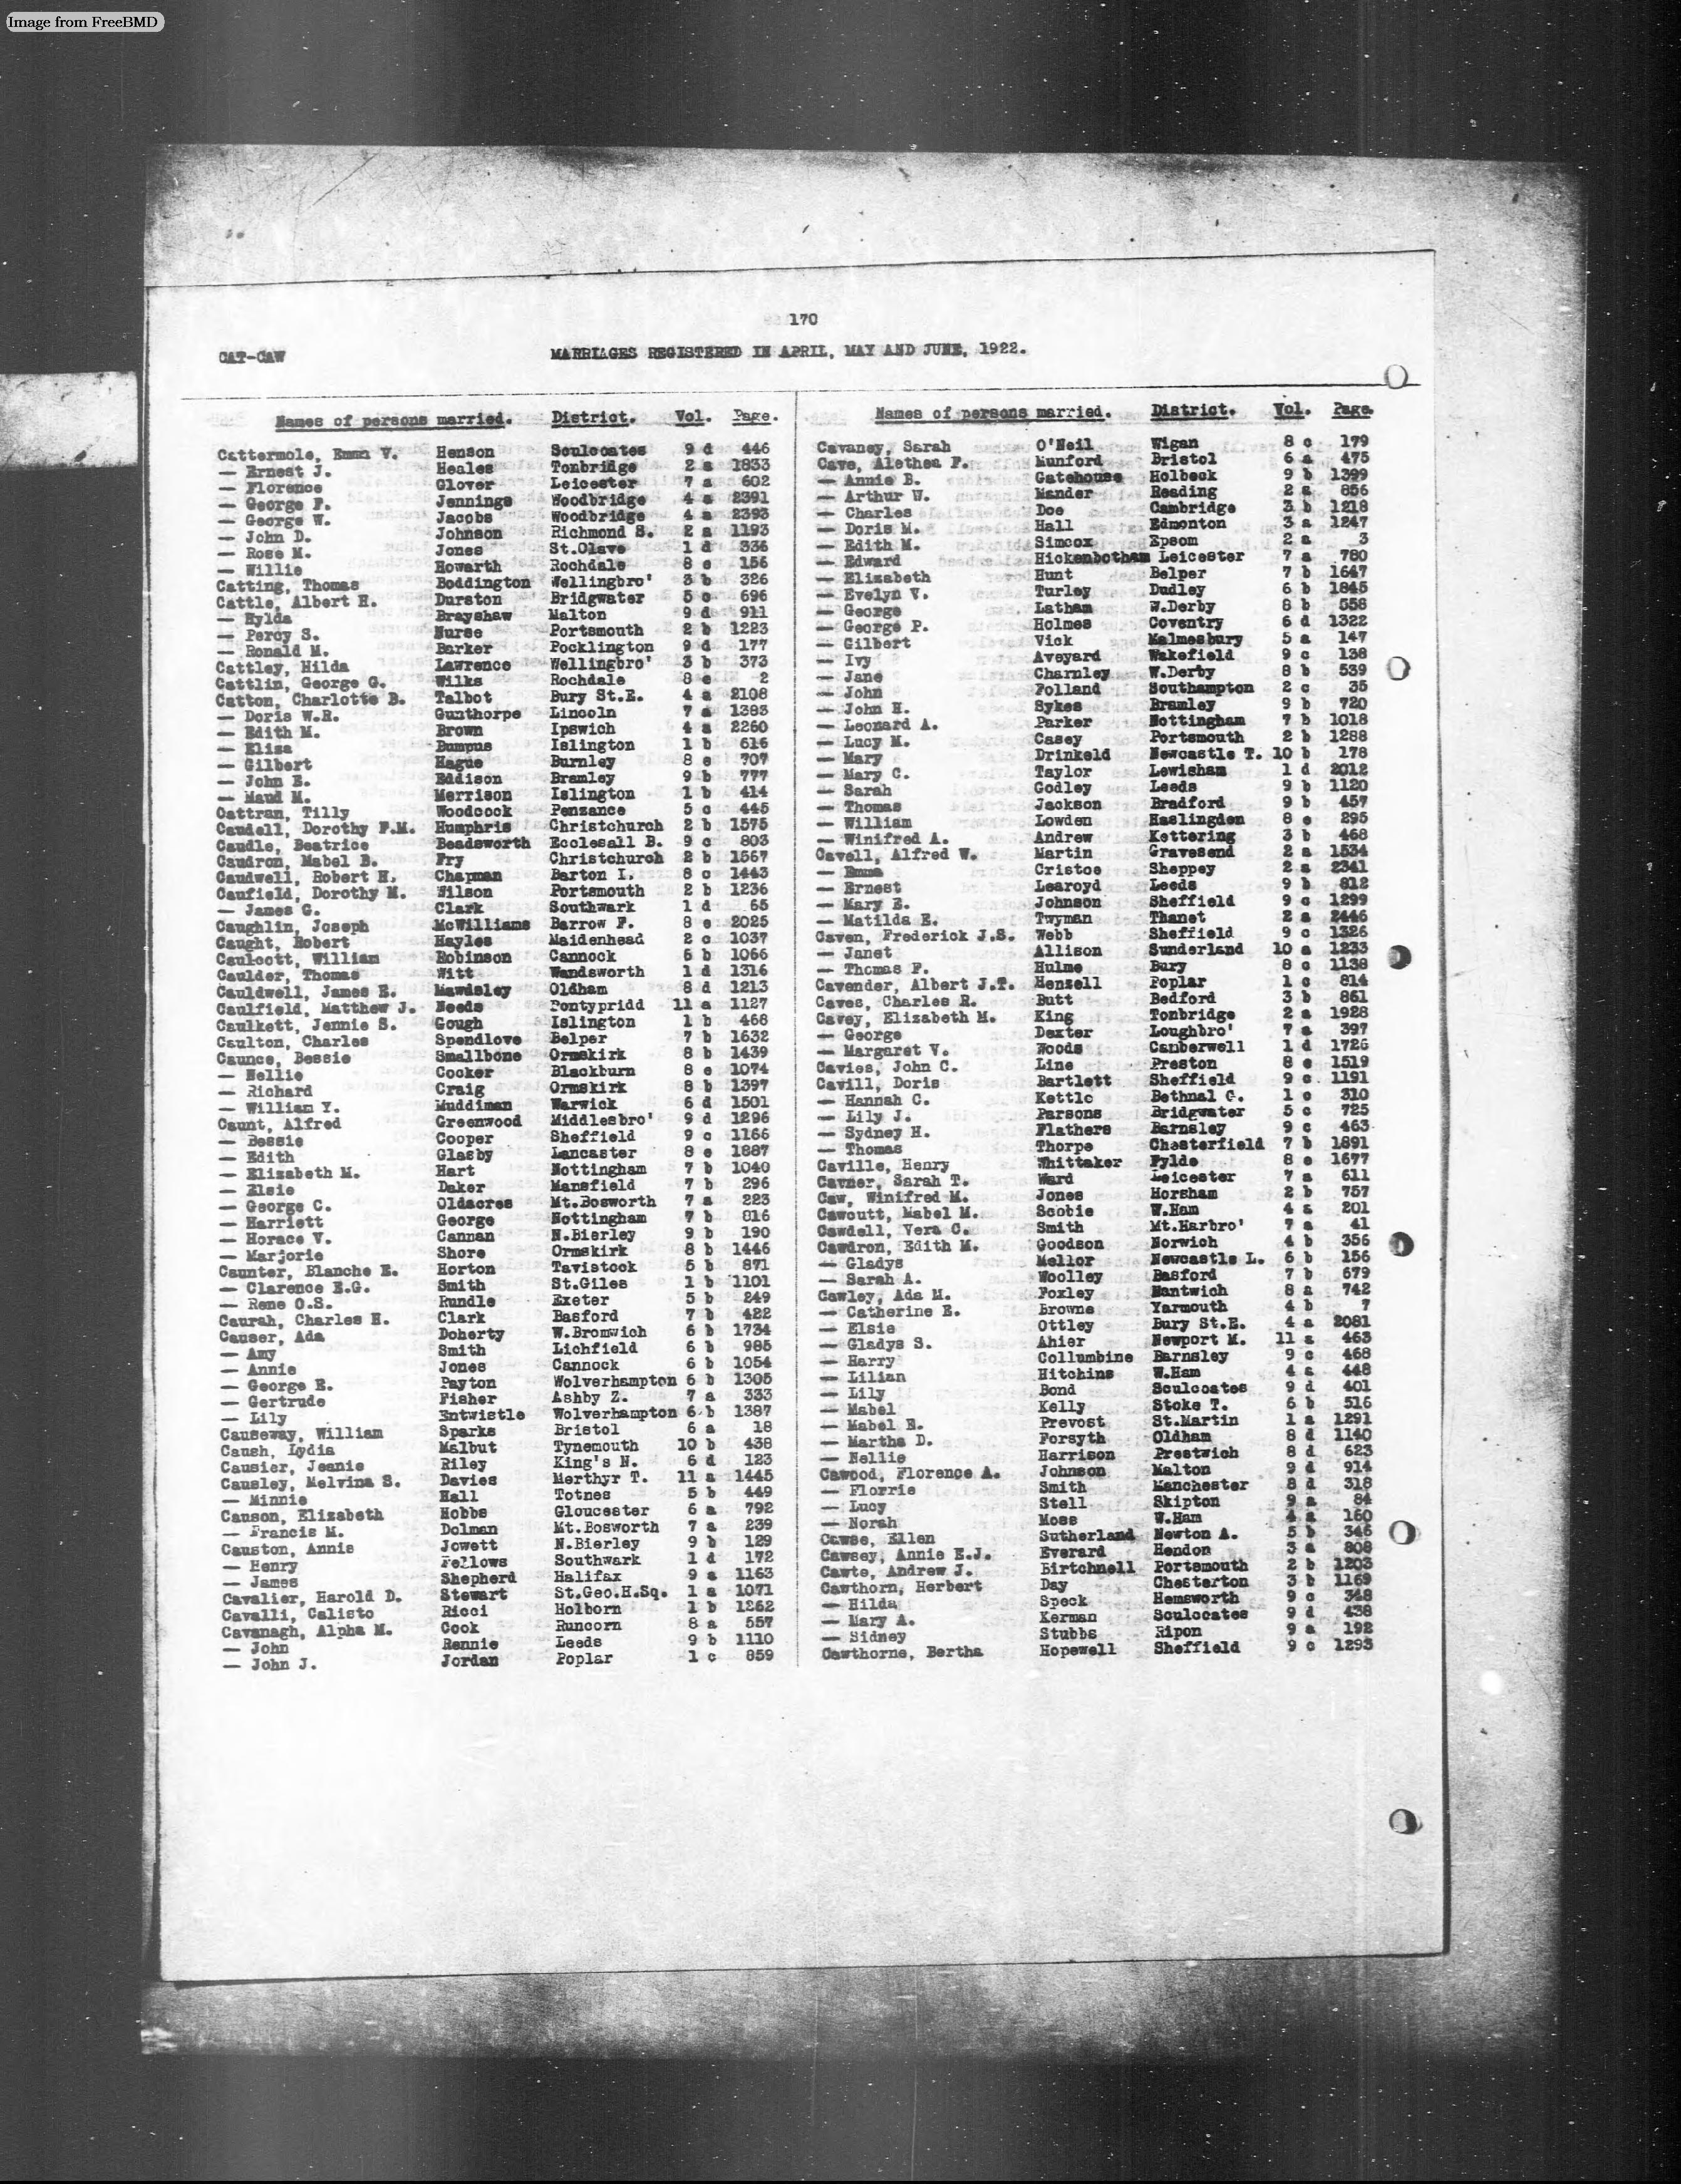 Image from FreeBMD
170
CAT-CAW MARRIAGES REGISTERED IN APRIL, MAY AND JUNE, 1922.
Names of persons married. District. Vol. Page.
Cattermole, Emma V. Henson Sculcoates 9 d 446
— Ernest J. Heales Tonbridge 2 a 1833
— Florence Glover Leicester 7 a 602
— George F. Jennings Woodbridge 4 a 2391
— George W. Jacobs Woodbridge 4 a 2393
— John D. Johnson Richmond S. 2 a 1193
— Rose M. Jones St.Olave 1 d 336
— Willie Howarth Rochdale 8 e 156
Catting, Thomas Boddington Wellingbro' 3 b 326
Cattle, Albert H. Durston Bridgwater 5 c 696
— Hylda Brayshaw Malton 9 d 911
— Percy S. Nurse Portsmouth 2 b 1223
— Ronald M. Barker Pocklington 9 d 177
Cattley, Hilda Lawrence Wellingbro' 3 b 373
Cattlin, George G. Wilks Rochdale 8 e 2
Catton, Charlotte B. Talbot Bury St.E. 4 a 2108
— Doris W.R. Gunthorpe Lincoln 7 a 1383
— Edith M. Brown Ipswich 4 a 2260
— Eliza Bumpus Islington 1 b 616
— Gilbert Hague Burnley 8 e 707
— John E. Eddison Bramley 9 b 777
— Maud M. Merrison Islington 1 b 414
Cattran, Tilly Woodcock Penzance 5 c 445
Caudell, Dorothy F.M. Humphris Christchurch 2 b 1575
Caudle, Beatrice Beadsworth Ecclesall B. 9 c 803
Caudron, Mabel B. Fry Christchurch 2 b 1567
Caudwell, Robert H. Chapman Barton I. 8 c 1443
Caufield, Dorothy M. Wilson Portsmouth 2 b 1236
— James G. Clark Southwark 1 d 65
Caughlin, Joseph McWilliams Barrow F. 8 e 2025
Caught, Robert Hayles Maidenhead 2 c 1037
Caulcott, William Robinson Cannock 6 b 1066
Caulder, Thomas Witt Wandsworth 1 d 1316
Cauldwell, James E. Mawdsley Oldham 8 d 1213
Caulfield, Matthew J. Needs Pontypridd 11 a 1127
Caulkett, Jennie S. Gough Islington 1 b 468
Caulton, Charles Spendlove Belper 7 b 1632
Caunce, Bessie Smallbone Ormskirk 8 b 1439
— Nellie Cocker Blackburn 8 e 1074
— Richard Craig Ormskirk 8 b 1397
— William Y. Muddiman Warwick 6 d 1501
Caunt, Alfred Greenwood Middlesbro' 9 d 1296
— Bessie Cooper Sheffield 9 c 1166
— Edith Glasby Lancaster 8 e 1887
— Elizabeth M. Hart Nottingham 7 b 1040
— Elsie Daker Mansfield 7 b 296
— George C. Oldacres Mt.Bosworth 7 a 223
— Harriett George Nottingham 7 b 816
— Horace V. Cannan N.Bierley 9 b 190
— Marjorie Shore Ormskirk 8 b 1446
Caunter, Blanche E. Horton Tavistock 5 b 871
— Clarence E.G. Smith St.Giles 1 b 1101
— Rene O.S. Rundle Exeter 5 b 249
Caurah, Charles H. Clark Basford 7 b 422
Causer, Ada Doherty W.Bromwich 6 b 1734
— Amy Smith Lichfield 6 b 985
— Annie Jones Cannock 6 b 1054
— George E. Payton Wolverhampton 6 b 1305
— Gertrude Fisher Ashby Z. 7 a 333
— Lily Entwistle Wolverhampton 6 b 1387
Causeway, William Sparks Bristol 6 a 18
Caush, Lydia Malbut Tynemouth 10 b 438
Causier, Jeanie Riley King's N. 6 d 123
Causley, Melvina S. Davies Merthyr T. 11 a 1445
— Minnie Hall Totnes 5 b 449
Causon, Elizabeth Hobbs Gloucester 6 a 792
— Francis M. Dolman Mt.Bosworth 7 a 239
Causton, Annie Jowett N.Bierley 9 b 129
— Henry Fellows Southwark 1 d 172
— James Shepherd Halifax 9 a 1163
Cavalier, Harold D. Stewart St.Geo.H.Sq. 1 a 1071
Cavalli, Calisto Ricci Holborn 1 b 1262
Cavanagh, Alpha M. Cook Runcorn 8 a 557
— John Rennie Leeds 9 b 1110
— John J. Jordan Poplar 1 c 859
Names of persons married. District. Vol. Page.
Cavaney, Sarah O'Neil Wigan 8 c 179
Cave, Alethea F. Munford Bristol 6 a 475
— Annie B. Gatehouse Holbeck 9 b 1399
— Arthur W. Mander Reading 2 a 856
— Charles Doe Cambridge 3 b 1218
— Doris M. Hall Edmonton 3 a 1247
— Edith M. Simcox Epsom 2 a 3
— Edward Hickenbotham Leicester 7 a 780
— Elizabeth Hunt Belper 7 b 1647
— Evelyn V. Turley Dudley 6 b 1845
— George Latham W.Derby 8 b 558
— George P. Holmes Coventry 6 d 1322
— Gilbert Vick Malmesbury 5 a 147
— Ivy Aveyard Wakefield 9 c 138
— Jane Charnley W.Derby 8 b 539
— John Polland Southampton 2 c 35
— John H. Sykes Bramley 9 b 720
— Leonard A. Parker Nottingham 7 b 1018
— Lucy M. Casey Portsmouth 2 b 1288
— Mary Drinkeld Newcastle T. 10 b 178
— Mary C. Taylor Lewisham 1 d 2012
— Sarah Godley Leeds 9 b 1120
— Thomas Jackson Bradford 9 b 457
— William Lowden Haslingden 8 e 295
— Winifred A. Andrew Kettering 3 b 468
Cavell, Alfred W. Martin Gravesend 2 a 1534
— Emma Cristoe Sheppey 2 a 2341
— Ernest Learoyd Leeds 9 b 812
— Mary E. Johnson Sheffield 9 c 1299
— Matilda E. Twyman Thanet 2 a 2446
Caven, Frederick J.S. Webb Sheffield 9 c 1326
— Janet Allison Sunderland 10 a 1233
— Thomas F. Hulme Bury 8 c 1138
Cavender, Albert J.T. Hensell Poplar 1 c 814
Caves, Charles R. Butt Bedford 3 b 861
Cavey, Elizabeth M. King Tonbridge 2 a 1928
— George Dexter Loughbro' 7 a 397
— Margaret V. Woods Camberwell 1 d 1726
Cavies, John C. Line Preston 8 e 1519
Cavill, Doris Bartlett Sheffield 9 c 1191
— Hannah C. Kettle Bethnal G. 1 c 310
— Lily J. Parsons Bridgwater 5 c 725
— Sydney H. Flathers Barnsley 9 c 463
— Thomas Thorpe Chesterfield 7 b 1891
Caville, Henry Whittaker Fylde 8 e 1677
Cavner, Sarah T. Ward Leicester 7 a 611
Caw, Winifred M. Jones Horsham 2 b 757
Cawcutt, Mabel M. Scobie W.Ham 4 a 201
Cawdell, Vera C. Smith Mt.Harbro' 7 a 41
Cawdron, Edith M. Goodson Norwich 4 b 356
— Gladys Mellor Newcastle L. 6 b 156
— Sarah A. Woolley Basford 7 b 679
Cawley, Ada M. Foxley Nantwich 8 a 742
— Catherine E. Browne Yarmouth 4 b 7
— Elsie Ottley Bury St.E. 4 a 2081
— Gladys S. Ahier Newport M. 11 a 463
— Harry Collumbine Barnsley 9 c 468
— Lilian Hitchins W.Ham 4 a 448
— Lily Bond Sculcoates 9 d 401
— Mabel Kelly Stoke T. 6 b 516
— Mabel E. Prevost St.Martin 1 a 1291
— Martha D. Forsyth Oldham 8 d 1140
— Nellie Harrison Prestwich 8 d 623
Cawood, Florence A. Johnson Malton 9 d 914
— Florrie Smith Manchester 8 d 318
— Lucy Stell Skipton 9 a 84
— Norah Moss W.Ham 4 a 160
Cawse, Ellen Sutherland Newton A. 5 b 346
Cawsey, Annie E.J. Everard Hendon 3 a 808
Cawte, Andrew J. Birtchnell Portsmouth 2 b 1203
Cawthorn, Herbert Day Chesterton 3 b 1169
— Hilda Speck Hemsworth 9 c 348
— Mary A. Kerman Sculcoates 9 d 438
— Sidney Stubbs Ripon 9 a 192
Cawthorne, Bertha Hopewell Sheffield 9 c 1293